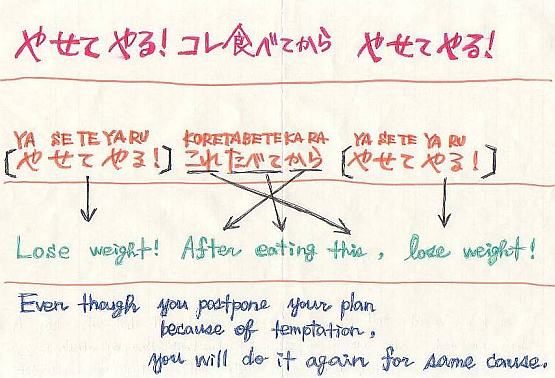 やせてやる! コレ食べてから やせてやる!
YA SE TE YA RU KORETABETEKARA YA SE TE YA RU
[やせてやる!] これたべてから [やせてやる!]
Lose weight! After eating this, lose weight!
Even though you postpone your plan
because of temptation,
you will do it again for same cause.